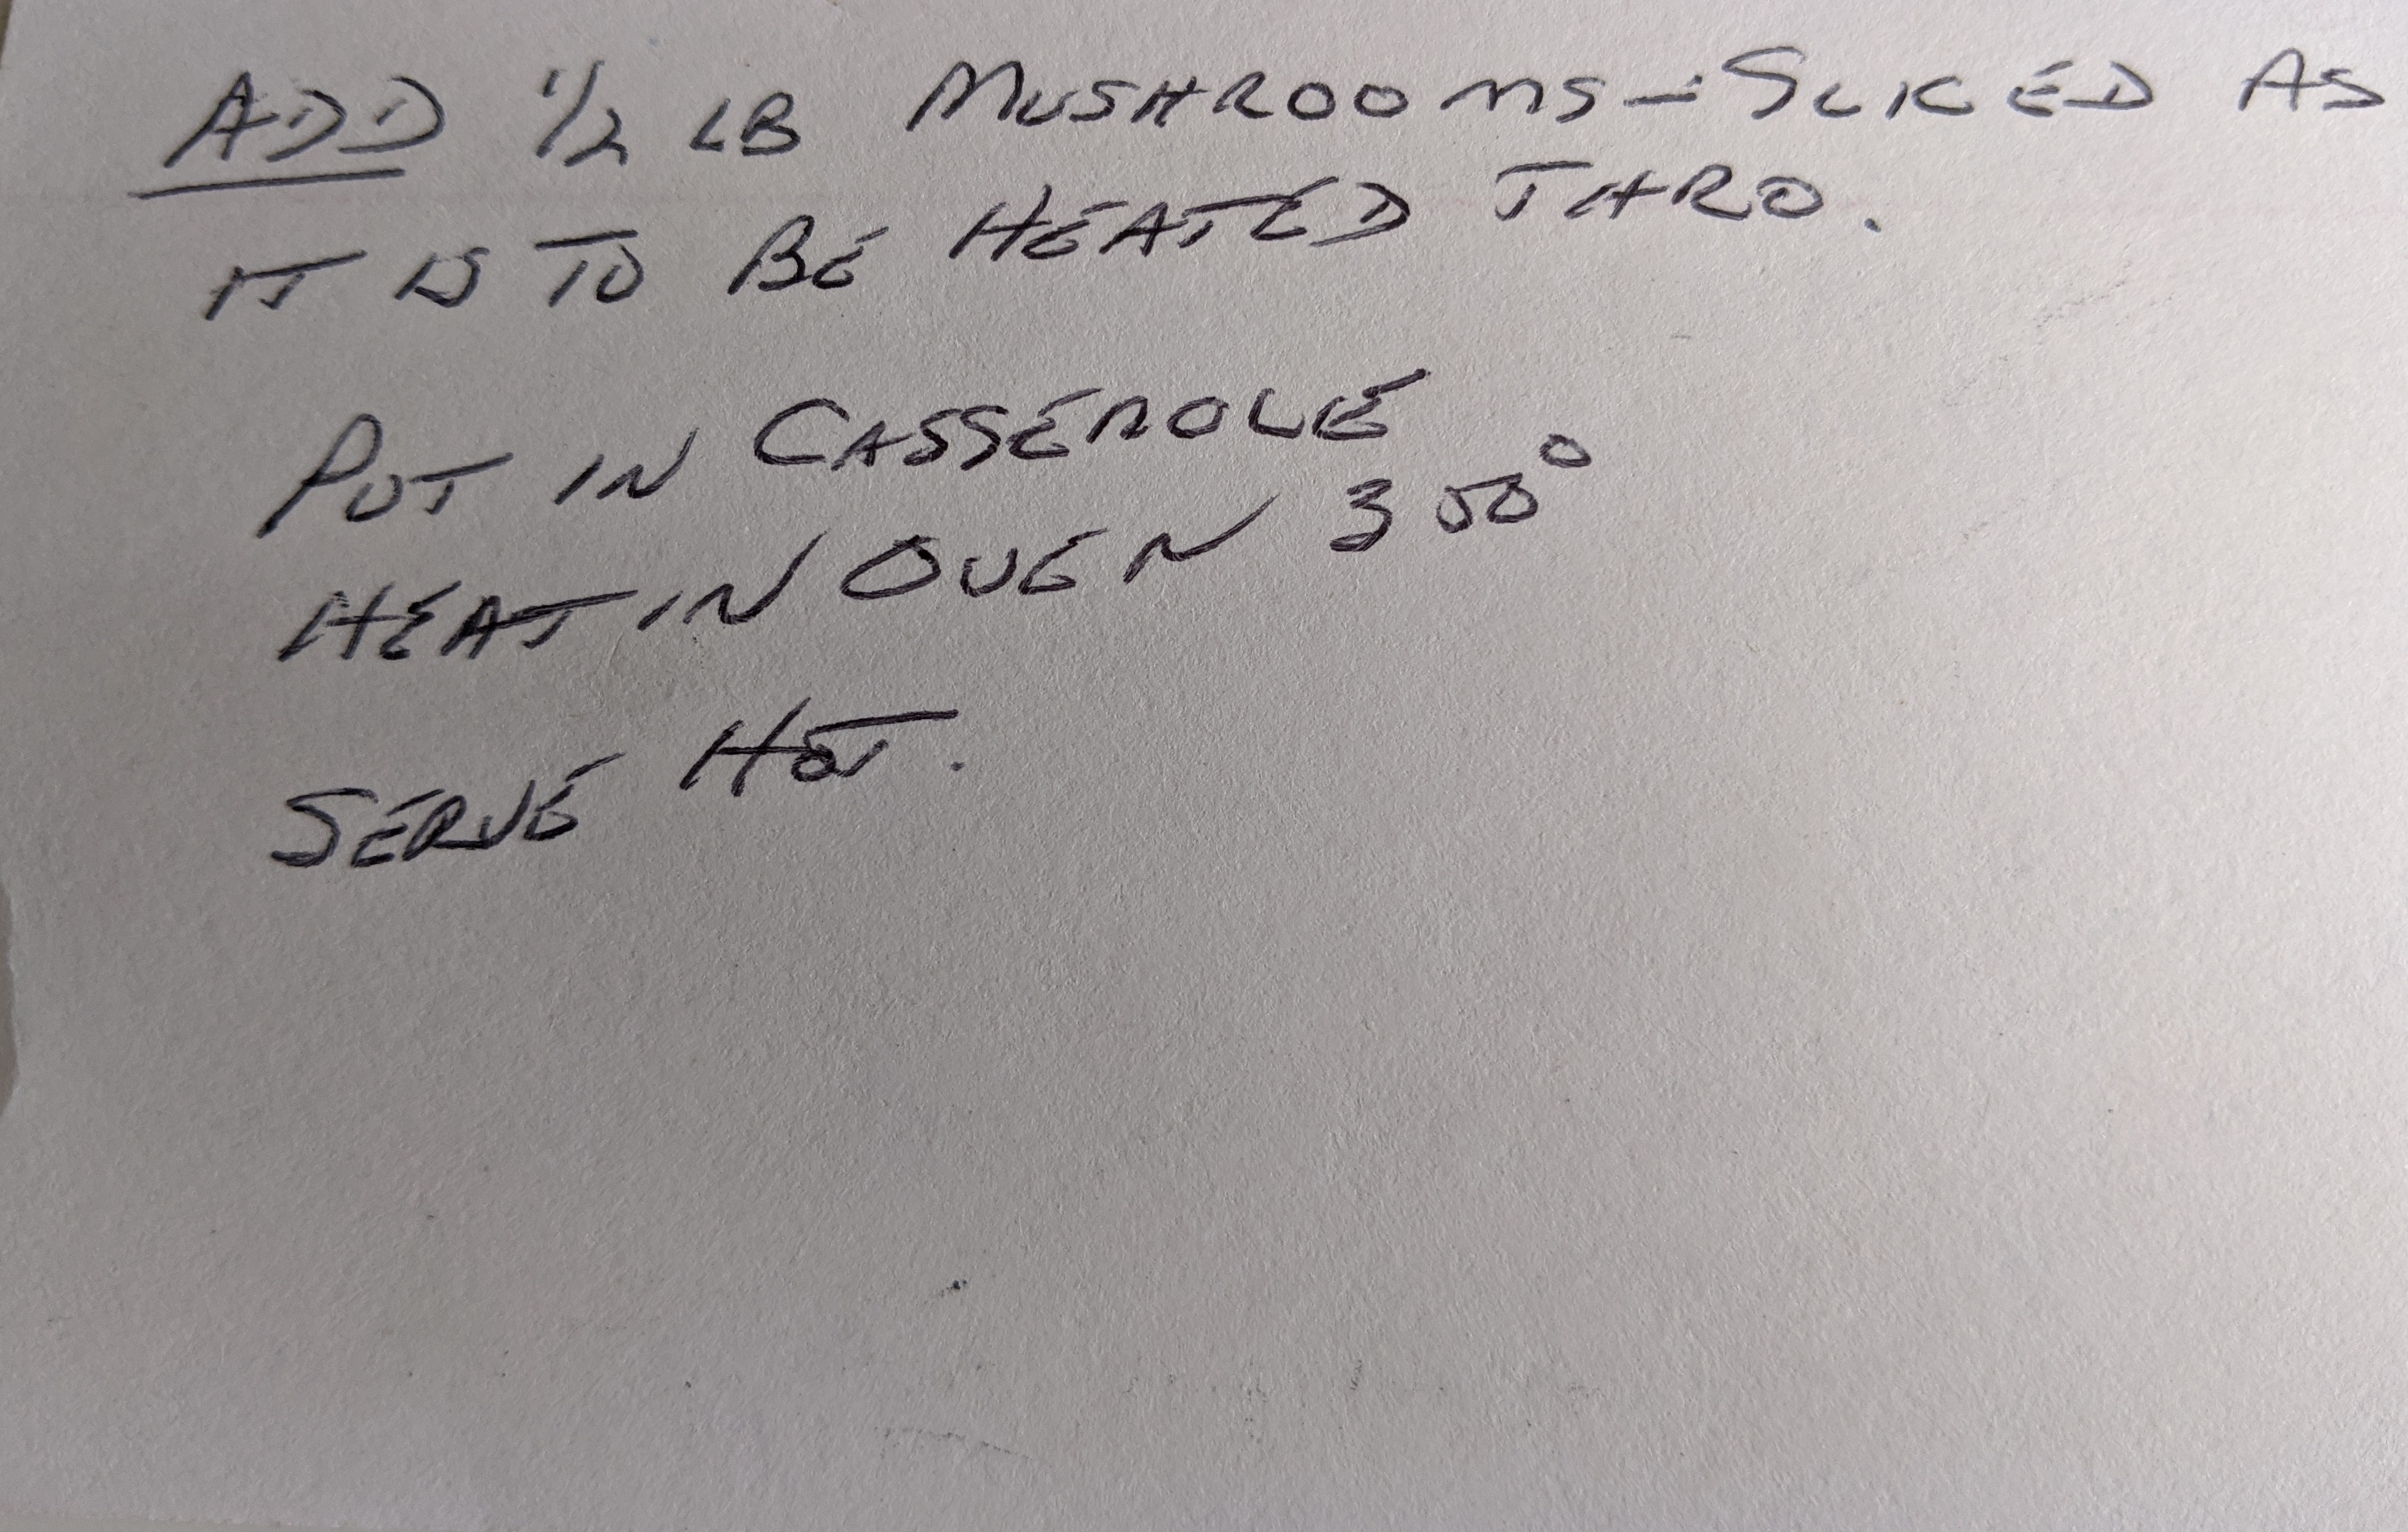 ADD 1/2 LB MUSHROOMS - SLICED AS
IT IS TO BE HEATED THRO.
PUT IN CASSEROLE
HEAT IN OVEN 350°
SERVE HOT.